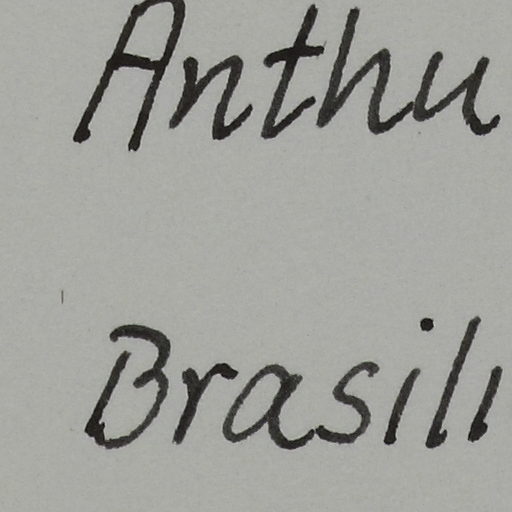 Anthu
Brasili